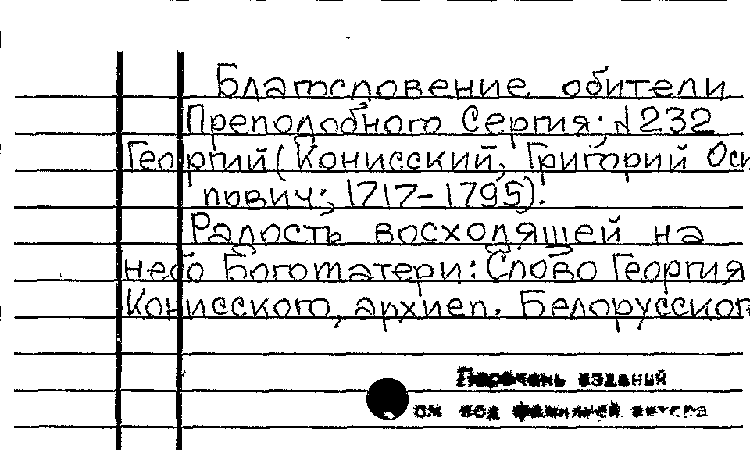 Благословение обители
Преподобного Сергия; №232
Георгий (Конисский, Григорий Оси
пович; 1717-1795).
Радость восходящей на
небо Богоматери: Слово Георгия
Конисского, архиеп. Белорусског
Перечень изданий
см под фамилией автора